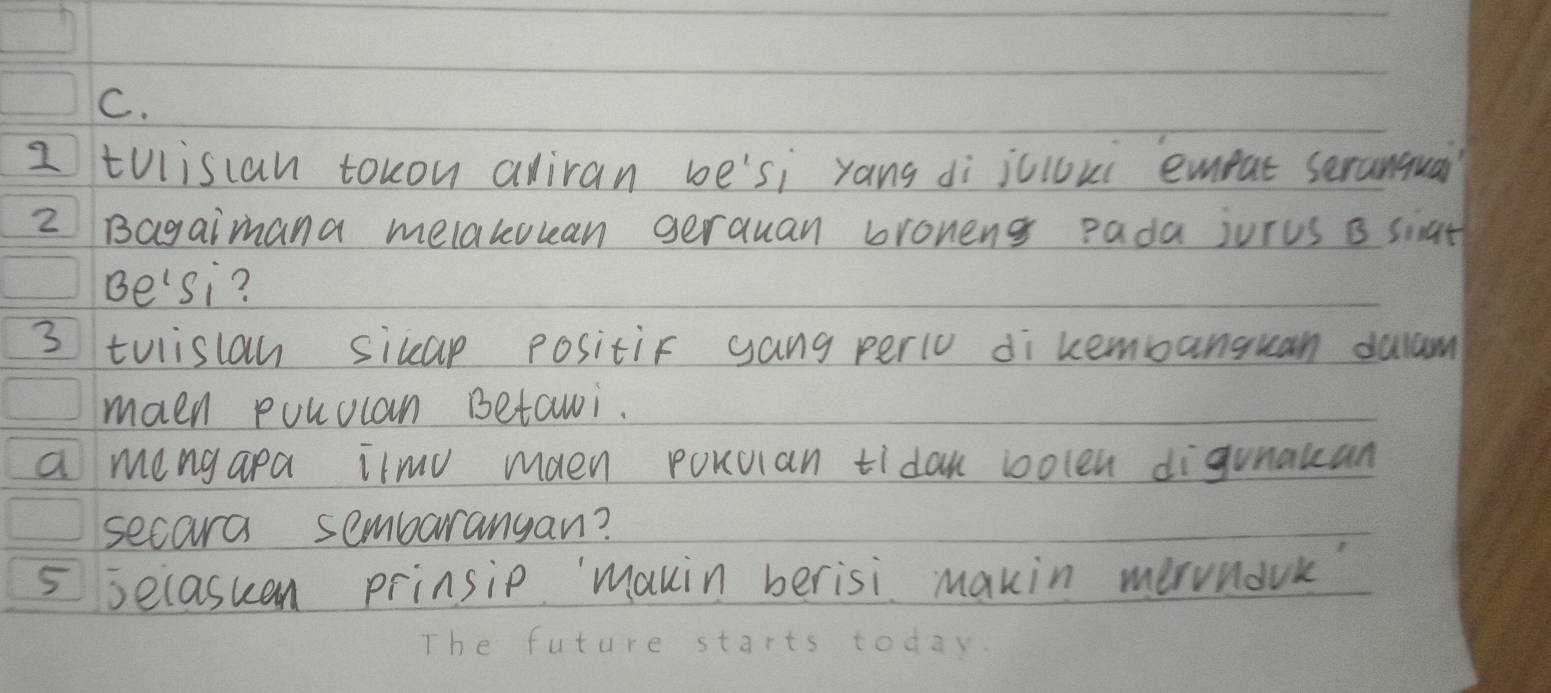 C.
1 tulislah tokoh aliran be'si yang di juluki 'empat serangkai'
2 Bagaimana melakukan gerakan broneng pada jurus 3 silat
Be'si?
3 tulislah sikap positif yang perlu di kembangkan dalam
maen pukulan Betawi.
a mengapa ilmu maen pukulan tidak boleh digunakan
secara sembarangan?
5 Jelaskan prinsip 'makin berisi makin merunduk'
The future starts today.